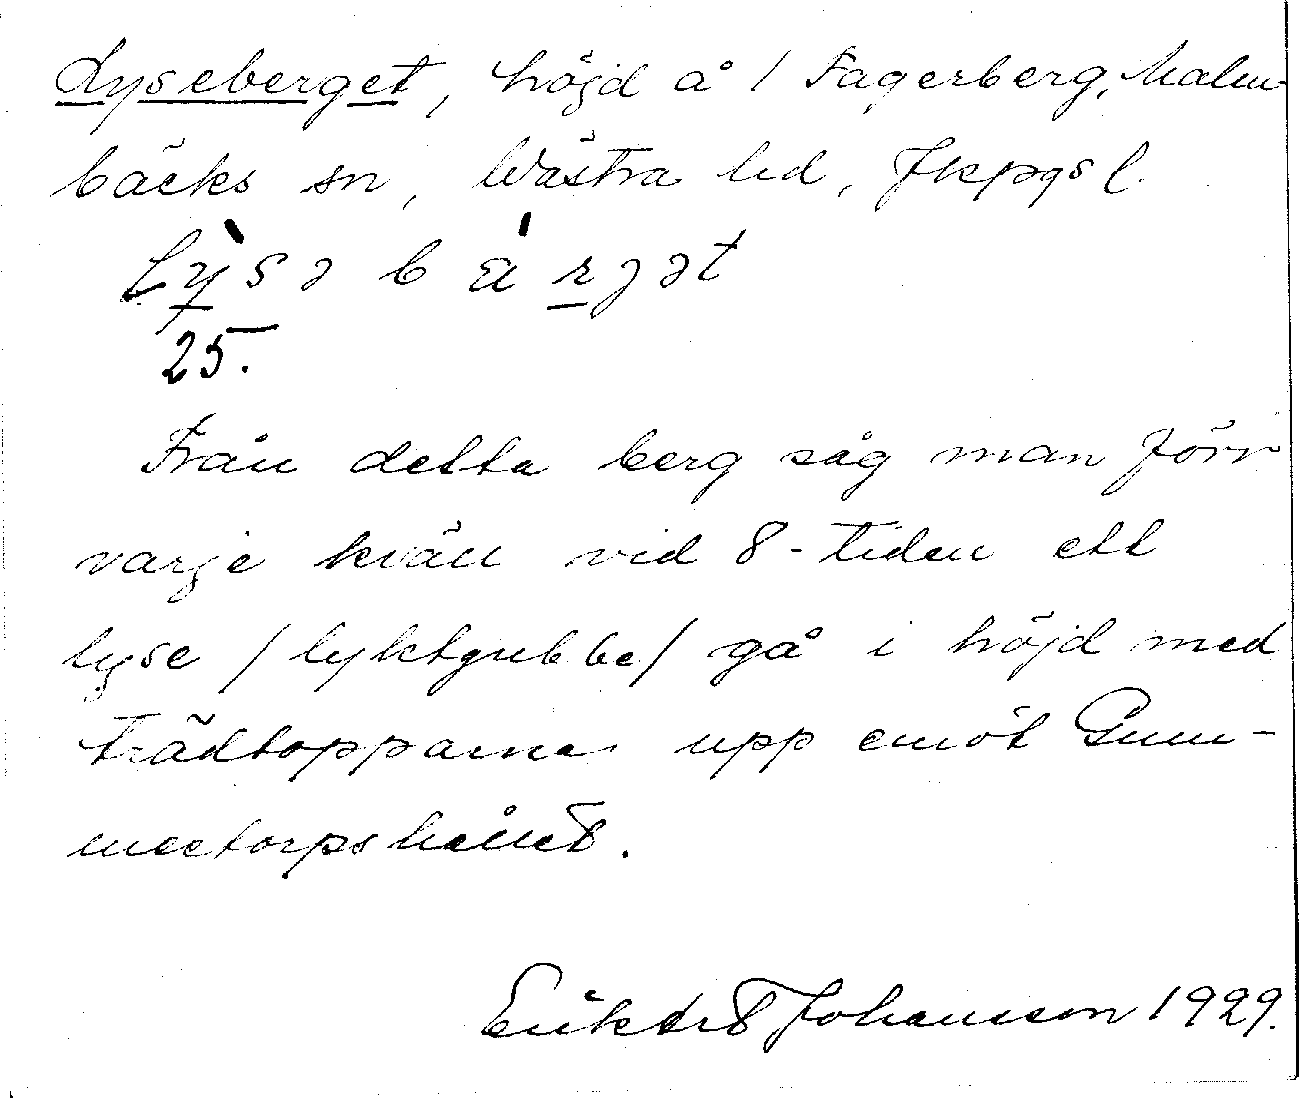 Lyseberget, höjd å / Fagerberg, Malm-
bäcks sn, Västra hd, Jkpgs l.
Lỳsəbá̈rjət
25.
Från detta berg såg man förr
varje kväll vid 8-tiden ett
lyse / lyktgubbe/ gå i höjd med
trädtopparna upp emot Gum-
metorpshållet.
Johansson 1929.